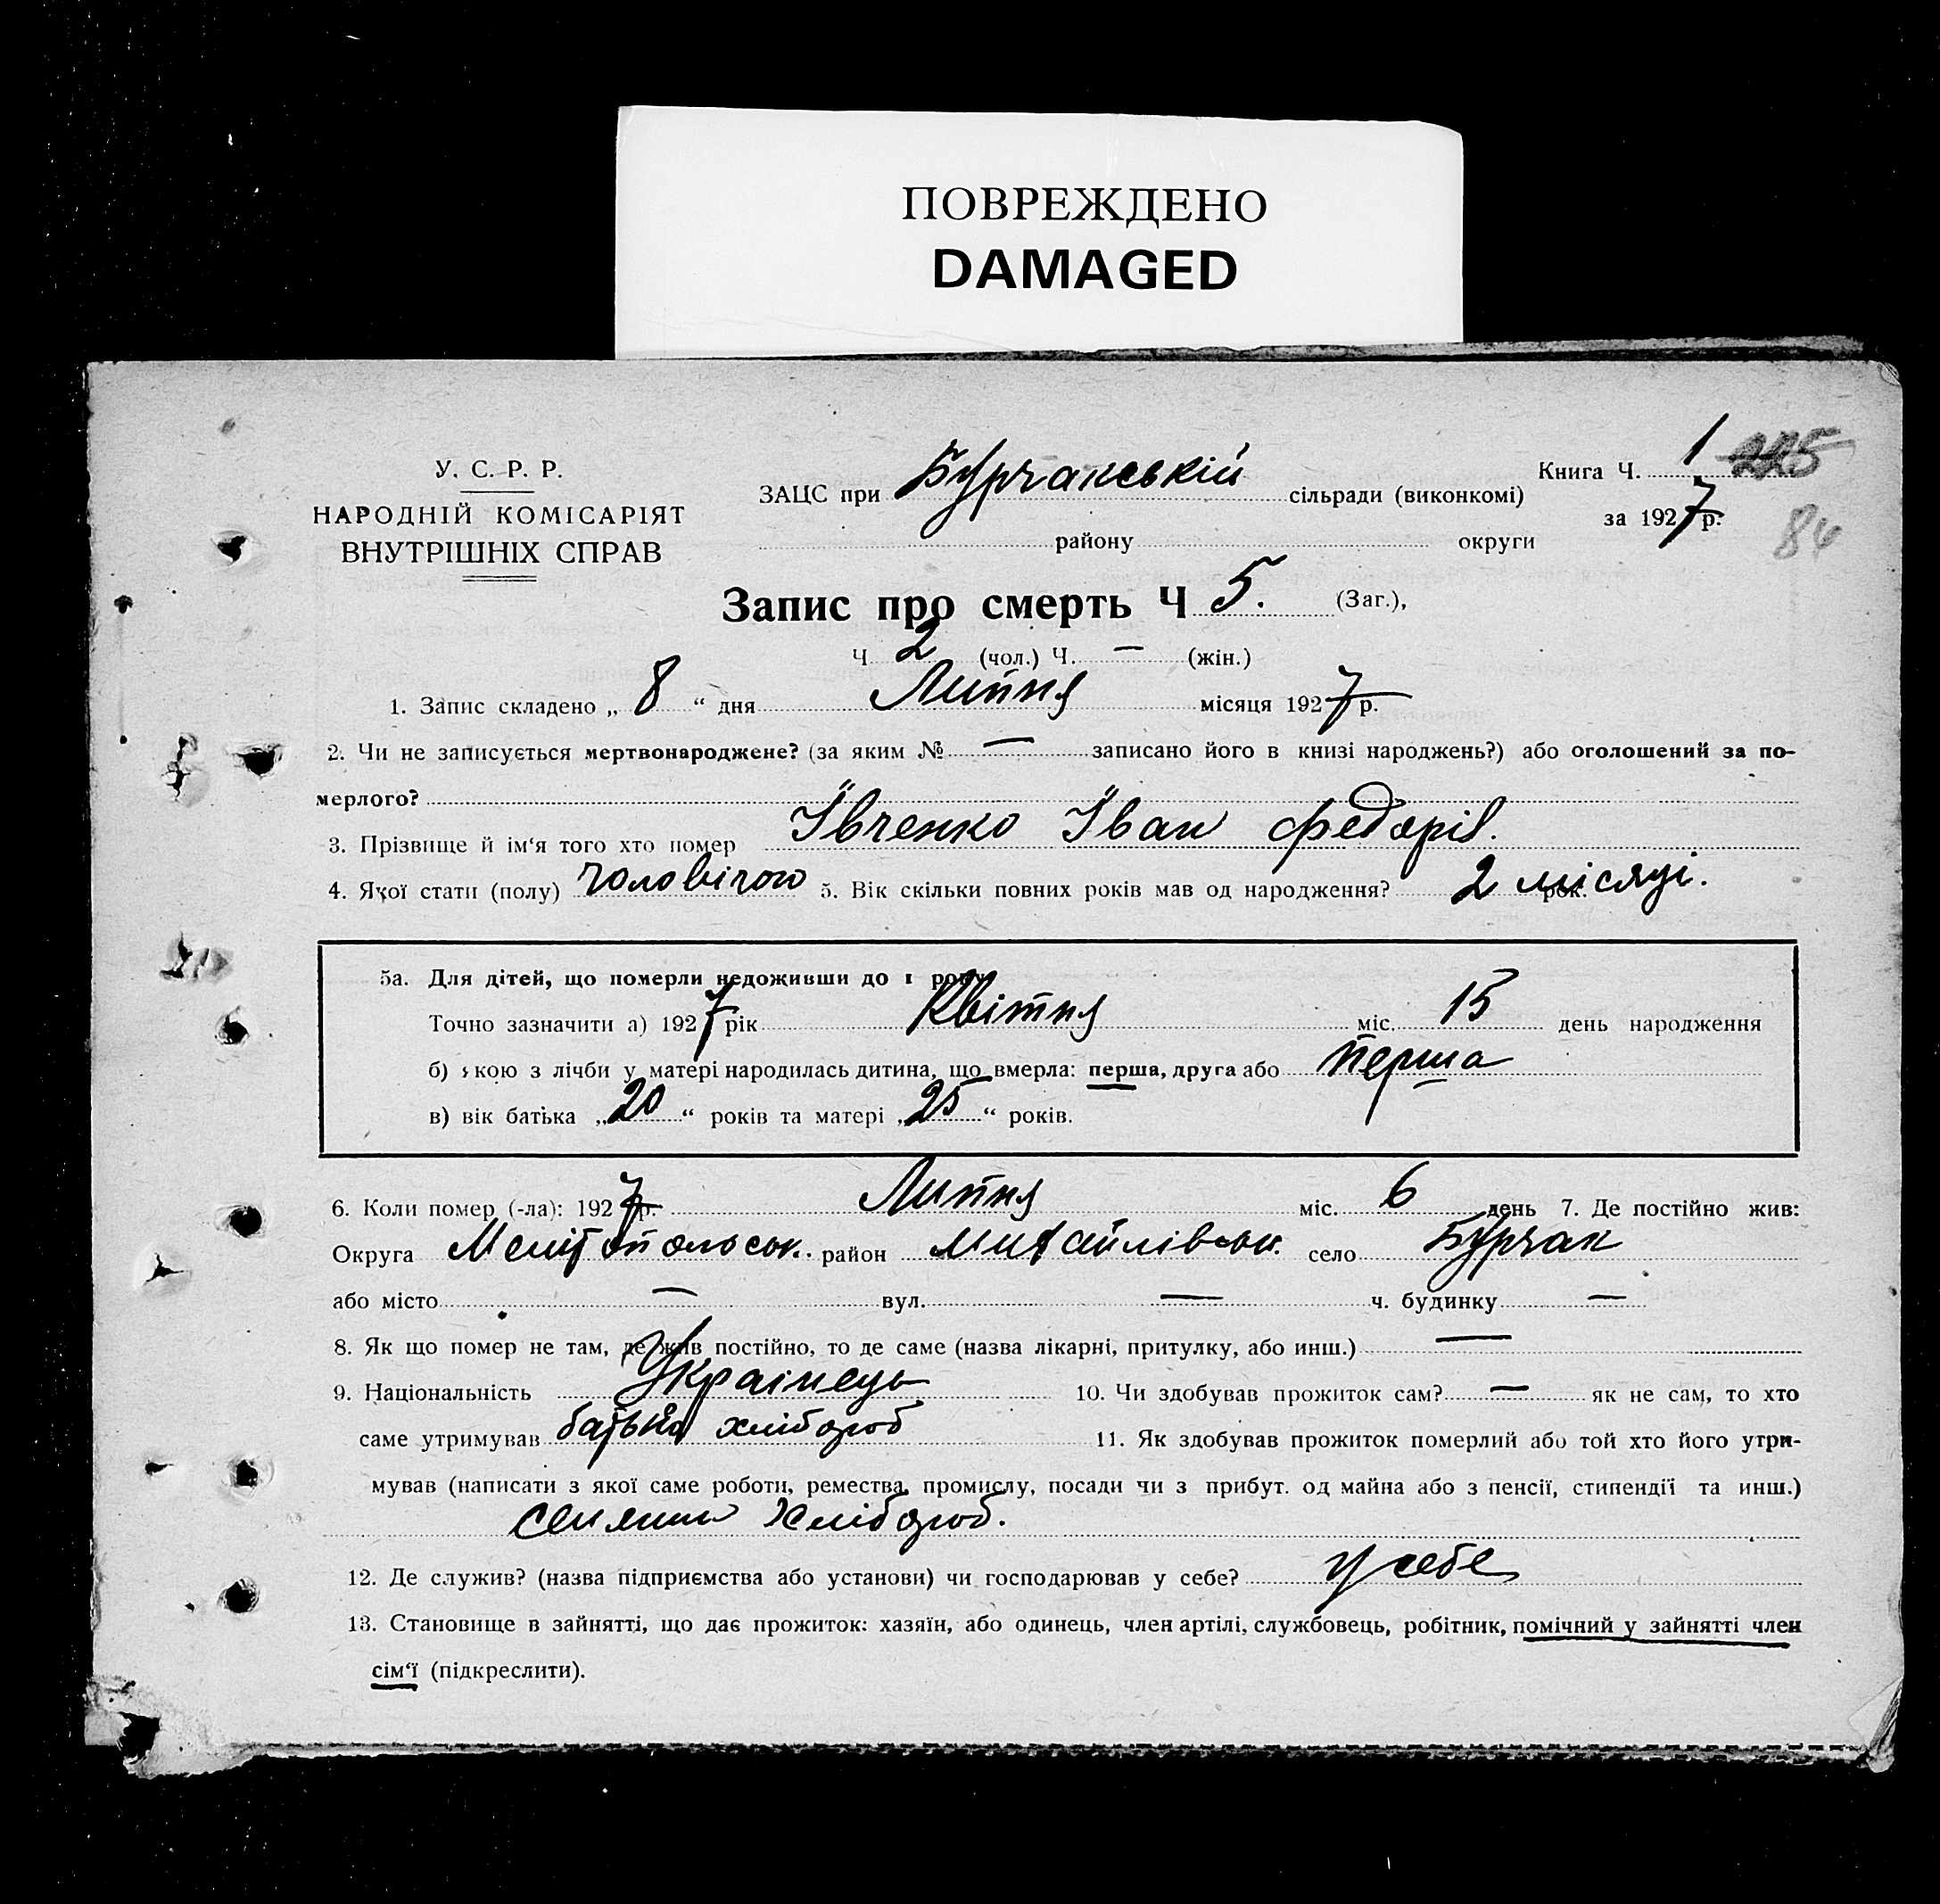 ПОВРЕЖДЕНО
DAMAGED
У. С. Р. Р.
НАРОДНІЙ КОМІСАРІЯТ
ВНУТРІШНІХ СПРАВ
ЗАЦС при Бурчакській сільради (виконкомі)
району округи
Книга Ч. 1 225
за 1927 р.
84
Запис про смерть Ч 5. (Заг.),
Ч 2 (чол.) Ч. — (жін.)
1. Запис складено „ 8 “ дня Липня місяця 1927 р.
2. Чи не записується мертвонароджене? (за яким № — записано його в книзі народжень?) або оголошений за по-
мерлого?
3. Прізвище й ім‘я того хто помер Івченко Іван Федорів.
4. Якої стати (полу) чоловічого 5. Вік скільки повних років мав од народження? 2 місяці. рок.
5а. Для дітей, що померли недоживши до 1 року
Точно зазначити а) 1927 рік Квітня міс. 15 день народження
б) якою з лічби у матері народилась дитина, що вмерла: перша, друга або перша
в) вік батька „ 20 “ років та матері „ 25 “ років.
6. Коли помер (-ла): 1927 р. Липня міс. 6 день 7. Де постійно жив:
Округа Мелітопольськ. район Михайлівськ. село Бурчак
або місто — вул. — ч. будинку —
8. Як що помер не там, де жив постійно, то де саме (назва лікарні, притулку, або инш.) —
9. Національність Украінець 10. Чи здобував прожиток сам? — як не сам, то хто
саме утримував батько хлібороб 11. Як здобував прожиток померлий або той хто його утри-
мував (написати з якої саме роботи, ремества, промислу, посади чи з прибут. од майна або з пенсії, стипендії та инш.)
селянин Хлібороб.
12. Де служив? (назва підприємства або установи) чи господарював у себе? у себе
13. Становище в зайнятті, що дає прожиток: хазяїн, або одинець, член артілі, службовець, робітник, помічний у зайнятті член
сім‘ї (підкреслити).